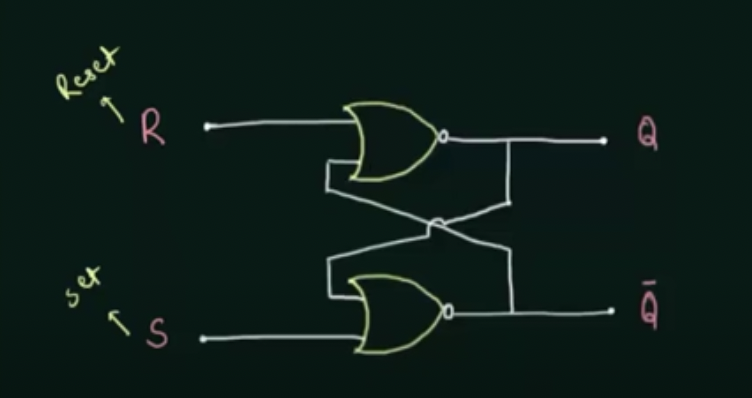 Reset
R
Q
set
S
Q̄